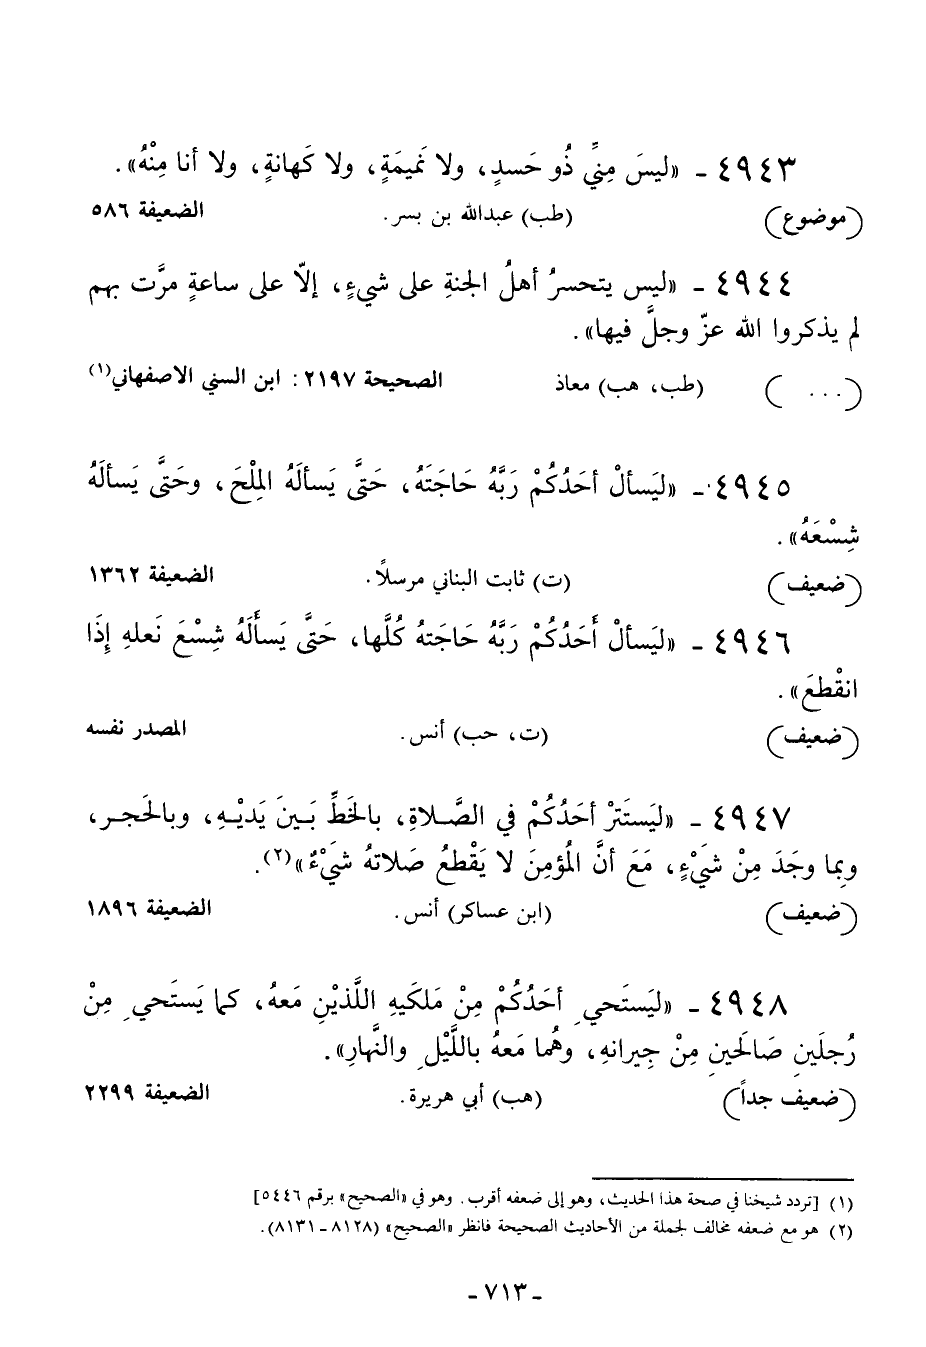 ٤٩٤٣ - «ليسَ مِنيِّ ذُو حَسدٍ، ولا نَميمَةٍ، ولا كَهانةٍ، ولا أنا مِنْهُ».
(موضوع) (طب) عبدالله بن بسر. الضعيفة ٥٨٦
٤٩٤٤ - «ليس يتحسرُ أهلُ الجنةِ على شيءٍ، إلّا على ساعةٍ مرَّت بهم
لم يذكروا الله عزّ وجلَّ فيها».
(...) (طب، هب) معاذ الصحيحة ٢١٩٧: ابن السني الاصفهاني(١)
٤٩٤٥ - «ليَسألْ أحَدُكُمْ رَبَّهُ حَاجَتَهُ، حَتَّى يَسألَهُ المِلْحَ، وحَتَّى يَسألَهُ
شِسْعَهُ».
(ضعيف) (ت) ثابت البناني مرسلاً. الضعيفة ١٣٦٢
٤٩٤٦ - «ليَسألْ أَحَدُكُمْ رَبَّهُ حَاجَتهُ كُلَّها، حَتَّى يَسأَلَهُ شِسْعَ نَعلهِ إِذَا
انقْطعَ».
(ضعيف) (ت، حب) أنس. المصدر نفسه
٤٩٤٧ - «ليَستَترْ أحَدُكُمْ في الصَّلاةِ، بالخَطِّ بَينَ يَديْهِ، وبالحَجرِ،
وبِما وجَدَ مِنْ شَيْءٍ، مَعَ أنَّ المُؤمِنَ لا يَقْطعُ صَلاتهُ شَيْءٌ»(٢).
(ضعيف) (ابن عساكر) أنس. الضعيفة ١٨٩٦
٤٩٤٨ - «ليَستَحي ِ أحَدُكُمْ مِنْ مَلكَيهِ اللَّذيْنِ مَعهُ، كما يَستَحي ِ مِنْ
رُجلَينِ صَالحَينِ مِنْ جِيرانهِ، وهُما مَعهُ باللَّيْلِ والنَّهارِ».
(ضعيف جداً) (هب) أبي هريرة. الضعيفة ٢٢٩٩
(١) [تردد شيخنا في صحة هذا الحديث، وهو إلى ضعفه أقرب. وهو في «الصحيح» برقم ٥٤٤٦]
(٢) هو مع ضعفه مخالف لجملة من الأحاديث الصحيحة فانظر «الصحيح» (٨١٢٨ - ٨١٣١).
- ٧١٣ -